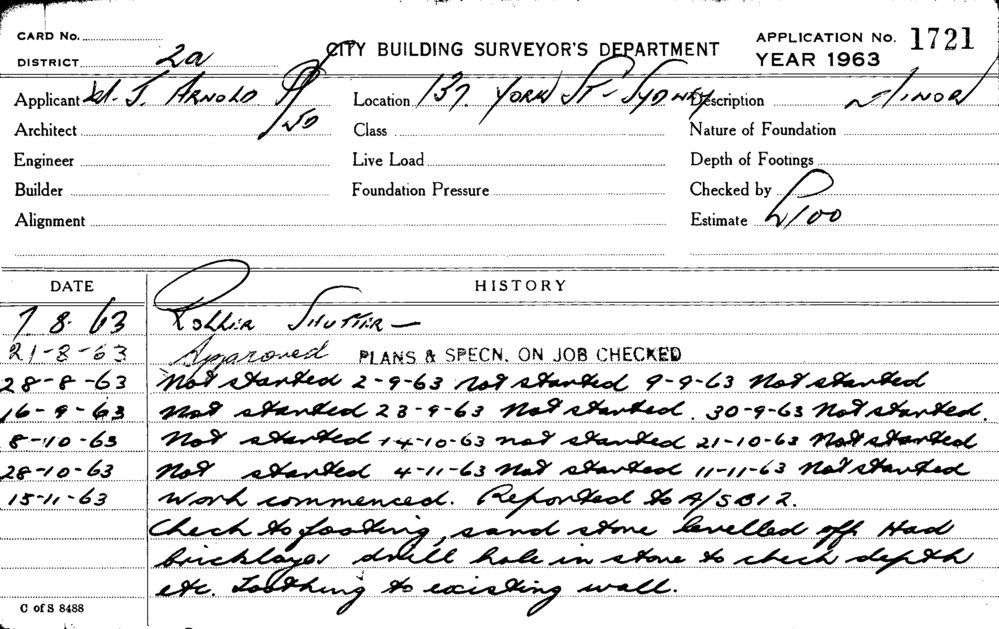 CARD No.
DISTRICT 2a
CITY BUILDING SURVEYOR'S DEPARTMENT
APPLICATION No. 1721
YEAR 1963
Applicant W. J. ARNOLD P/L Location 137 YORK ST - SYDNEY Description MINOR
Architect Class Nature of Foundation
Engineer Live Load Depth of Footings
Builder Foundation Pressure Checked by
Alignment Estimate £100
DATE HISTORY
7 8. 63 ROLLER SHUTTER —
21-8-63 Approved PLANS & SPECN. ON JOB CHECKED
28-8-63 Not started 2-9-63 not started 9-9-63 Not started
16-9-63 Not started 23-9-63 Not started. 30-9-63 Not started.
8-10-63 Not started 14-10-63 not started 21-10-63 Not started
28-10-63 Not started 4-11-63 Not started 11-11-63 Not started
15-11-63 Work commenced. Reported to A/SB12.
Check to footing, sand stone levelled off. Had
bricklayer drill hole in stone to check depth
etc. Toothing to existing wall.
C of S 8488